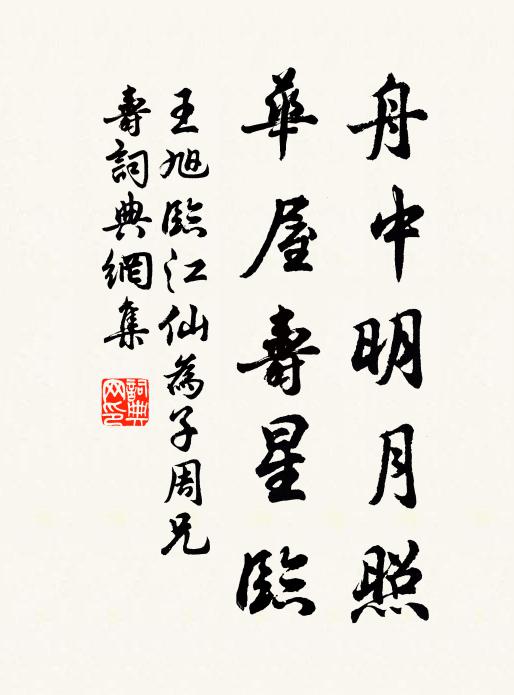 舟中明月照
華屋壽星臨
王旭臨江仙為子周兄
壽詞典網集
詞典
网印